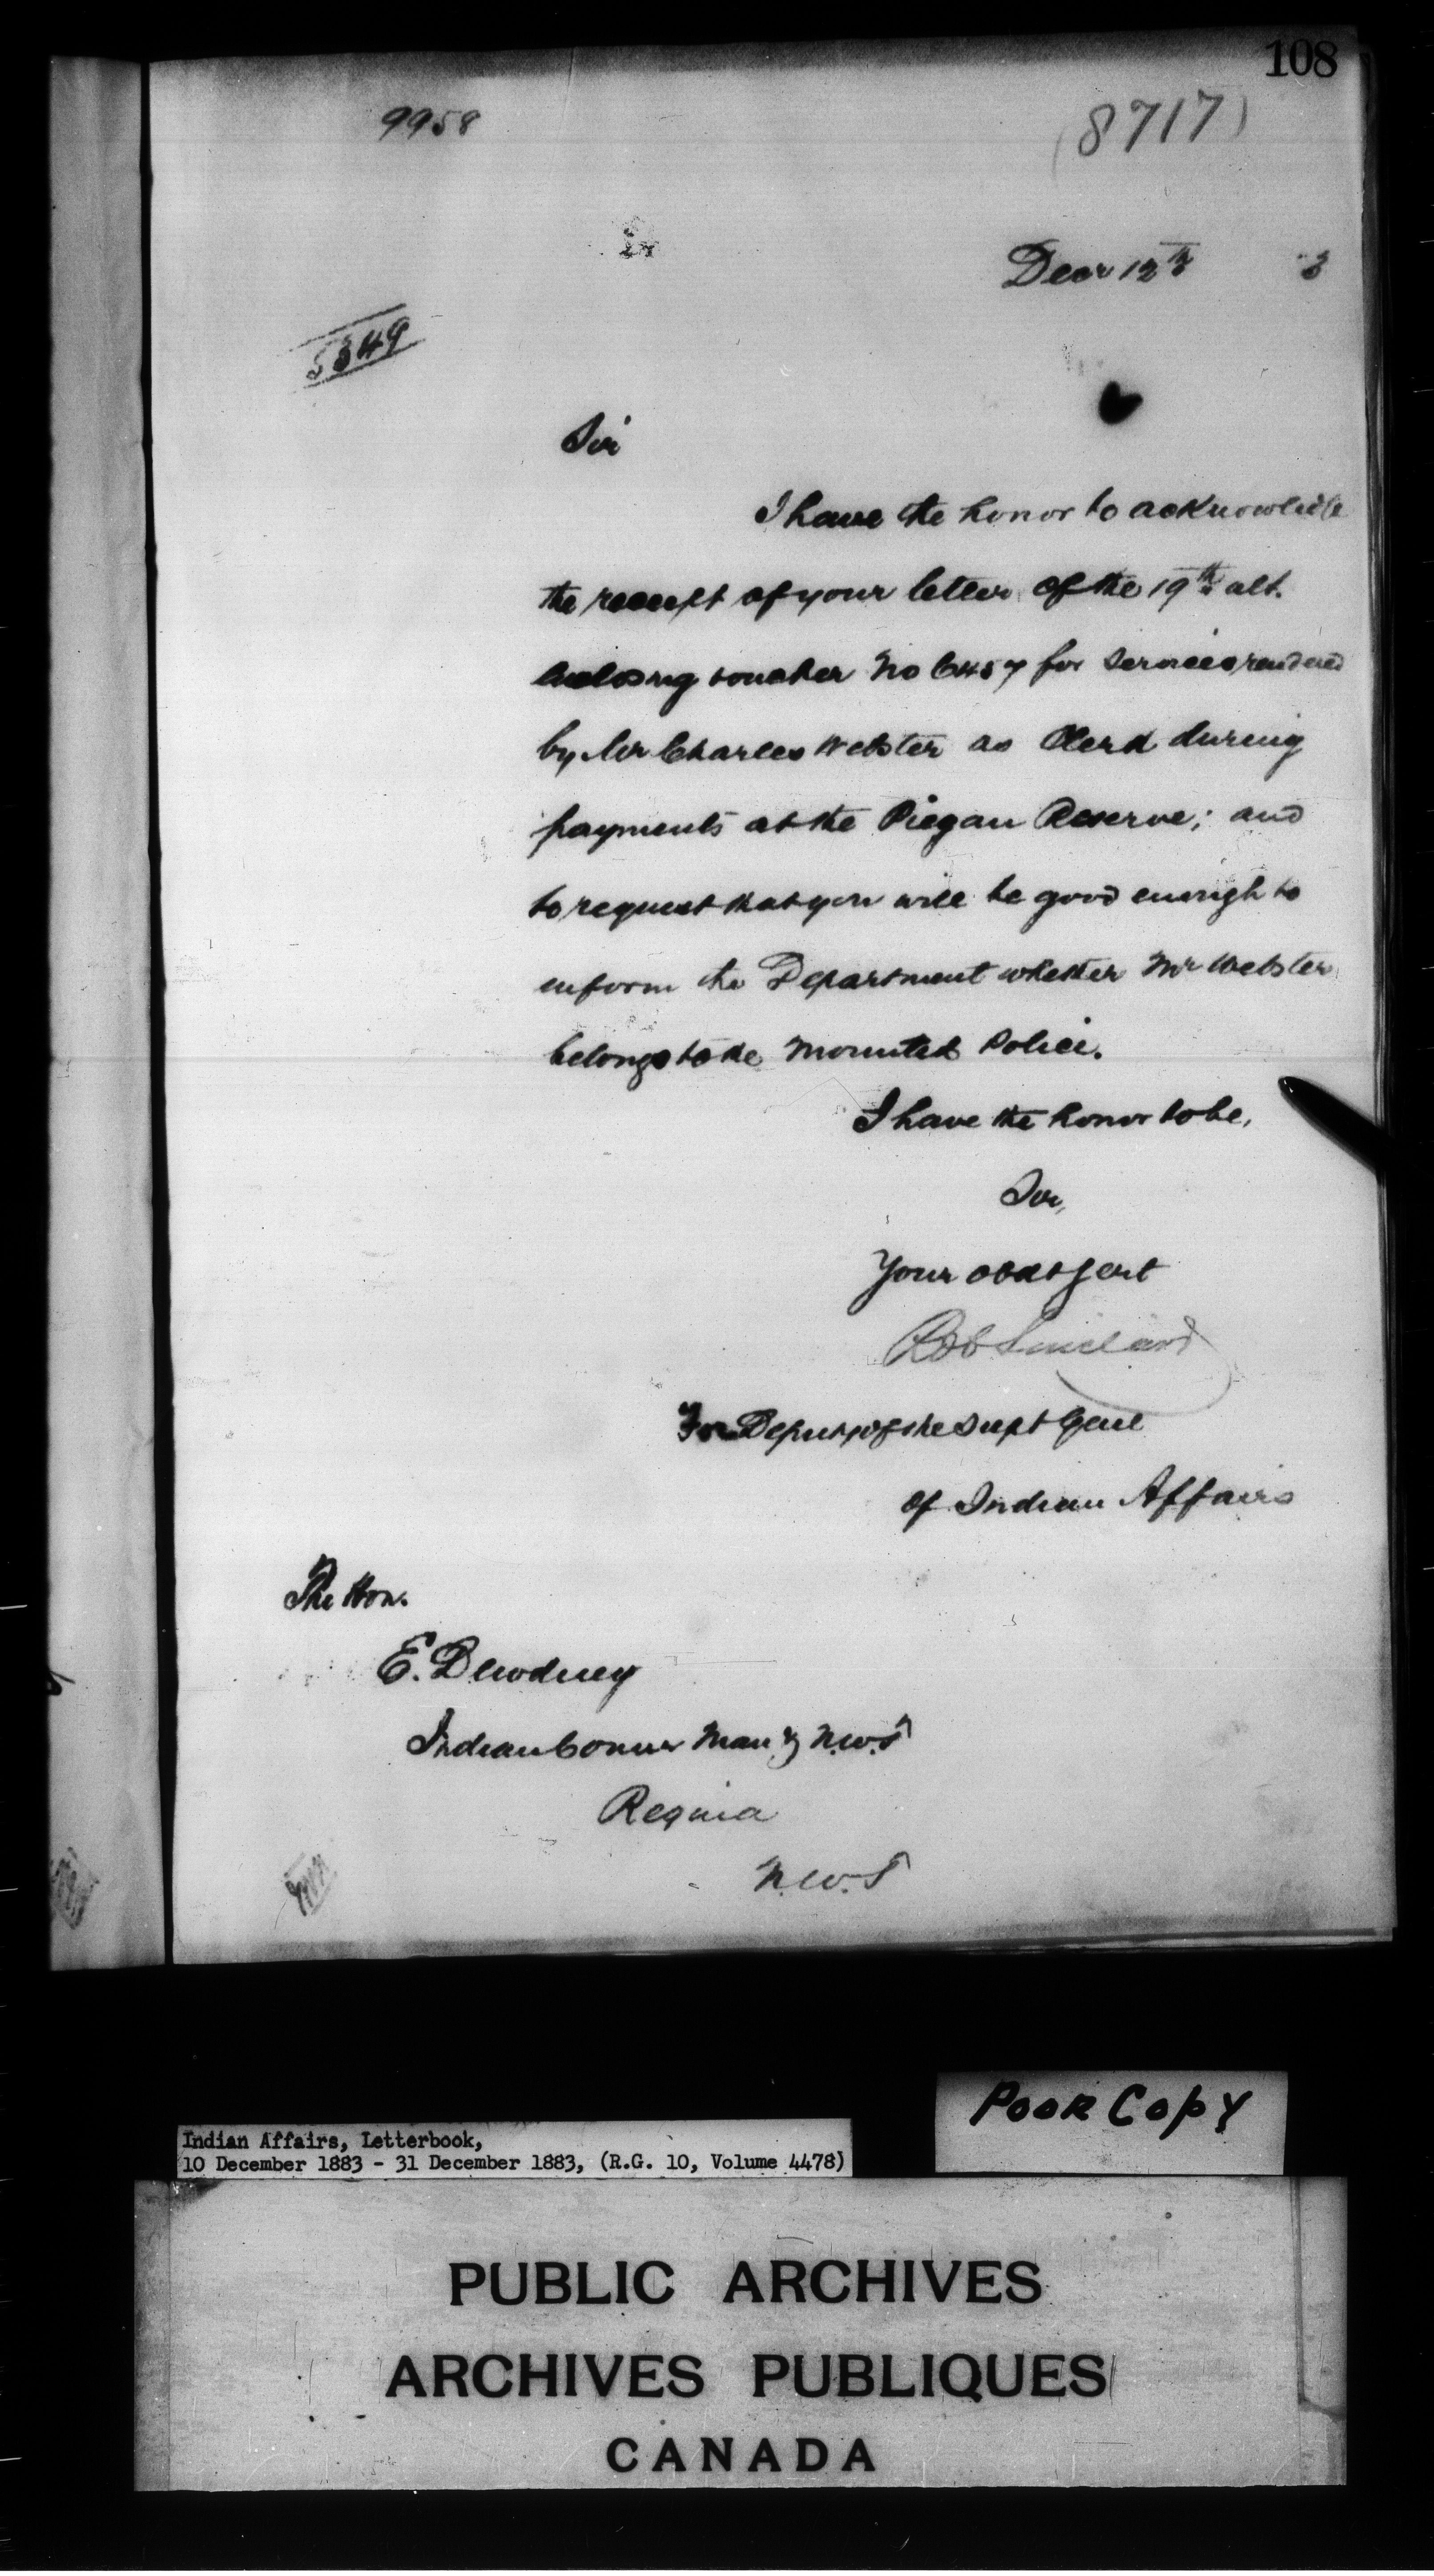 108
9958
(8717)
Decr 12th 3
5349
Sir
I have the honor to acknowledge
the receipt of your letter of the 19th ult.
enclosing voucher No 6457 for services rendered
by Mr Charles Webster as Clerk during
payments at the Piegan Reserve; and
to request that you will be good enough to
inform the Department whether Mr Webster
belongs to the Mounted Police.
I have the honor to be,
Sir,
Your obdt Servt
Rob Sinclair
For Deputy of the Supt Genl
of Indian Affairs
The Hon.
E. Dewdney
Indian Commr Man & N.W.T
Regina
N.W.T
Poor Copy
Indian Affairs, Letterbook,
10 December 1883 - 31 December 1883, (R.G. 10, Volume 4478)
PUBLIC ARCHIVES
ARCHIVES PUBLIQUES
CANADA